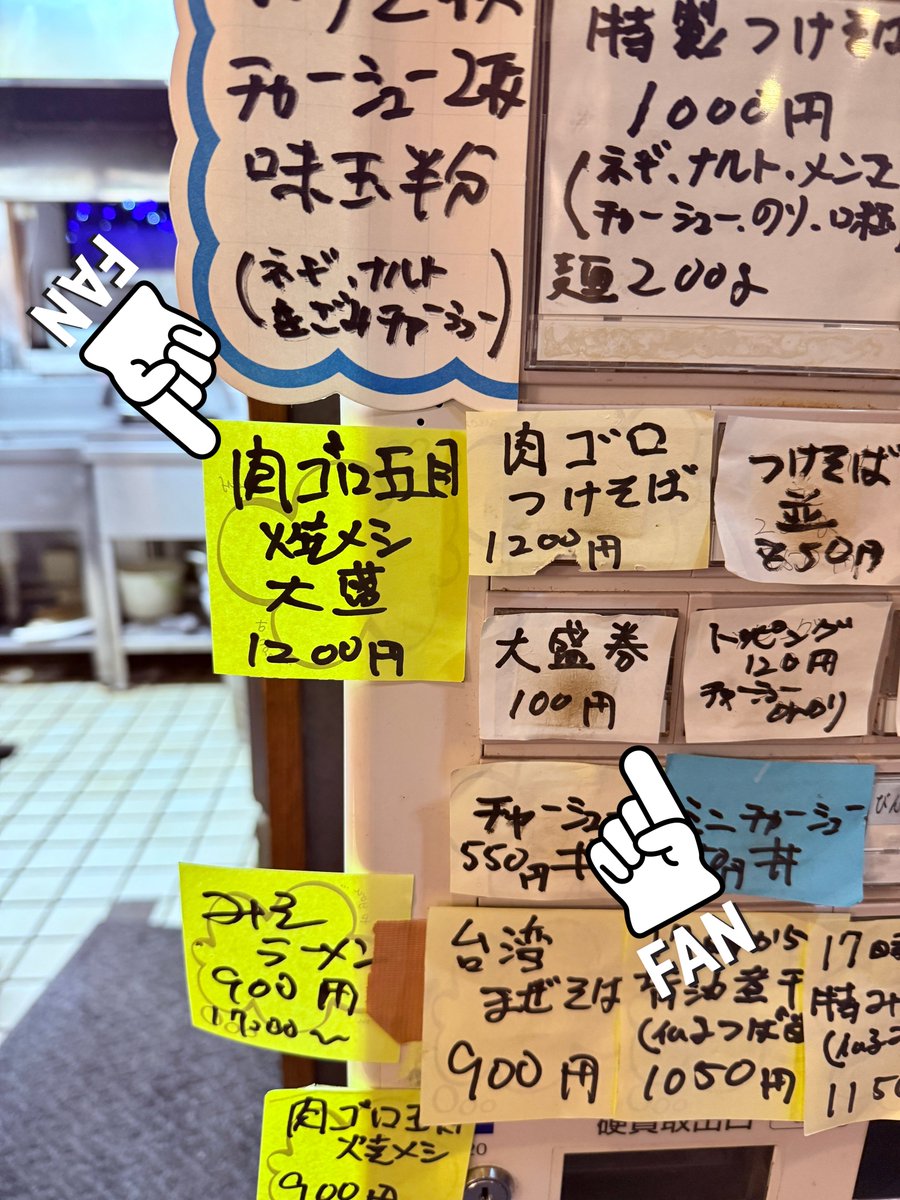 チャーシュー2枚
味玉半分
(ネギ、ナルト
きざみチャーシュー)
特製つけそば
1000円
(ネギ、ナルト・メンマ
チャーシュー、のり、味玉)
麺200g
FAN
肉ゴロ五目
焼メシ
大盛
1200円
肉ゴロ
つけそば
1200円
つけそば
並
850円
大盛券
100円
トッピング
120円
チャーシュー
のり
チャーシュー
550円丼
ミニチャーシュー
円丼
FAN
みそ
ラーメン
900円
17:00〜
台湾
まぜそば
900円
から
煮干
1050円
17時
特み
1150
肉ゴロ五
焼メシ
900円
硬貨取出口